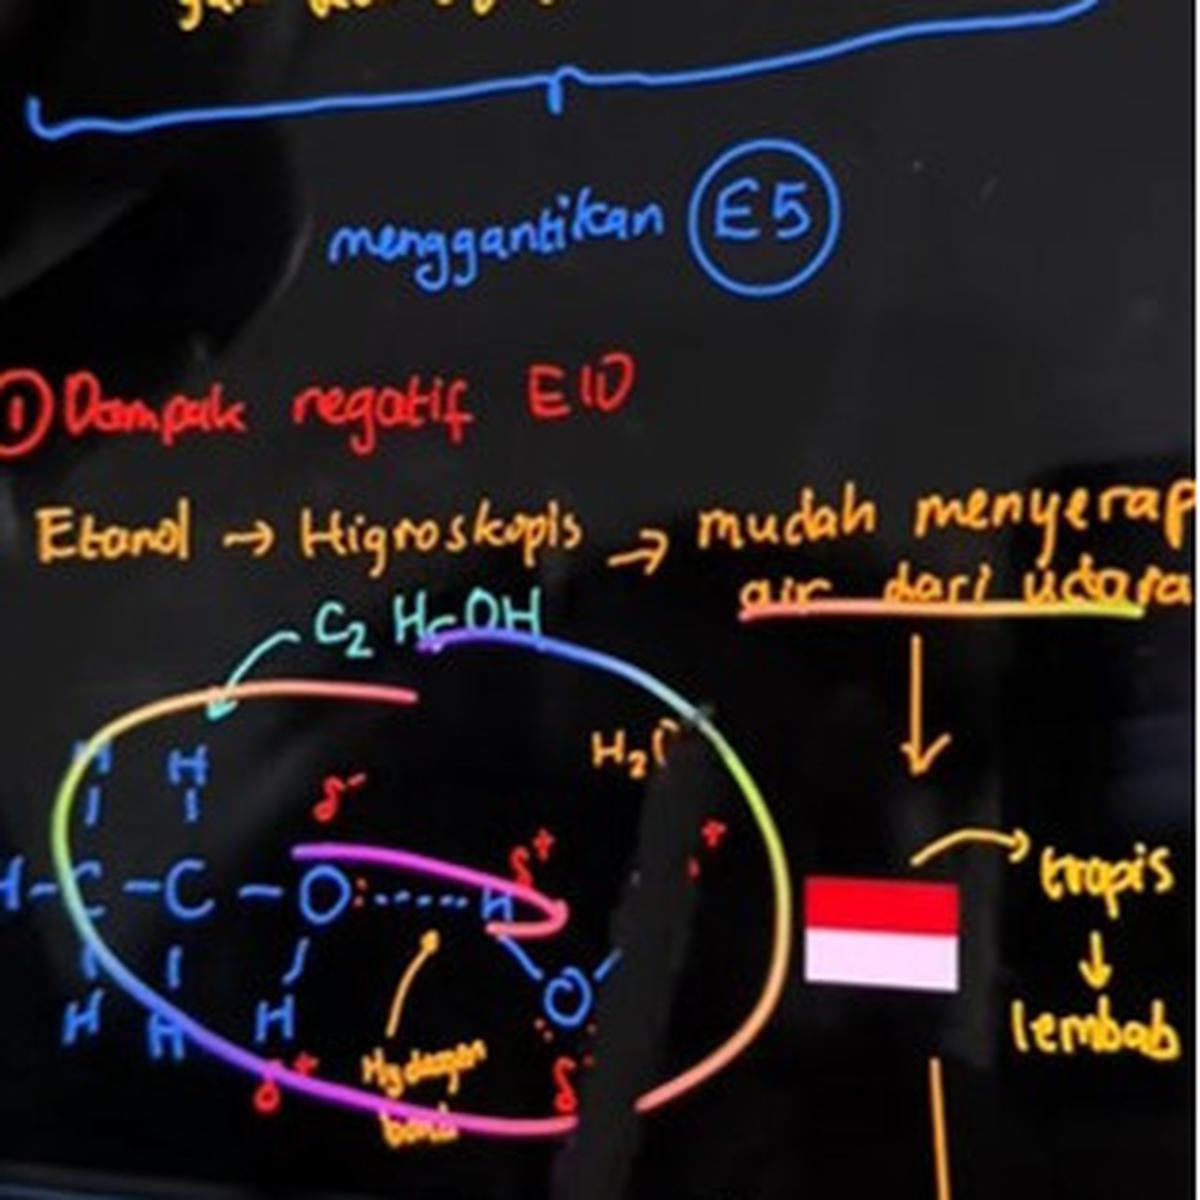 menggantikan E5
① Dampak negatif E10
Etanol → Higroskopis → mudah menyerap
air dari udara
C₂H₅OH
H₂
H H
δ⁻
δ⁺
+
H-C-C-O:-----H
O
H H H
δ⁺
δ⁻
Hydrogen
bond
tropis
lembab